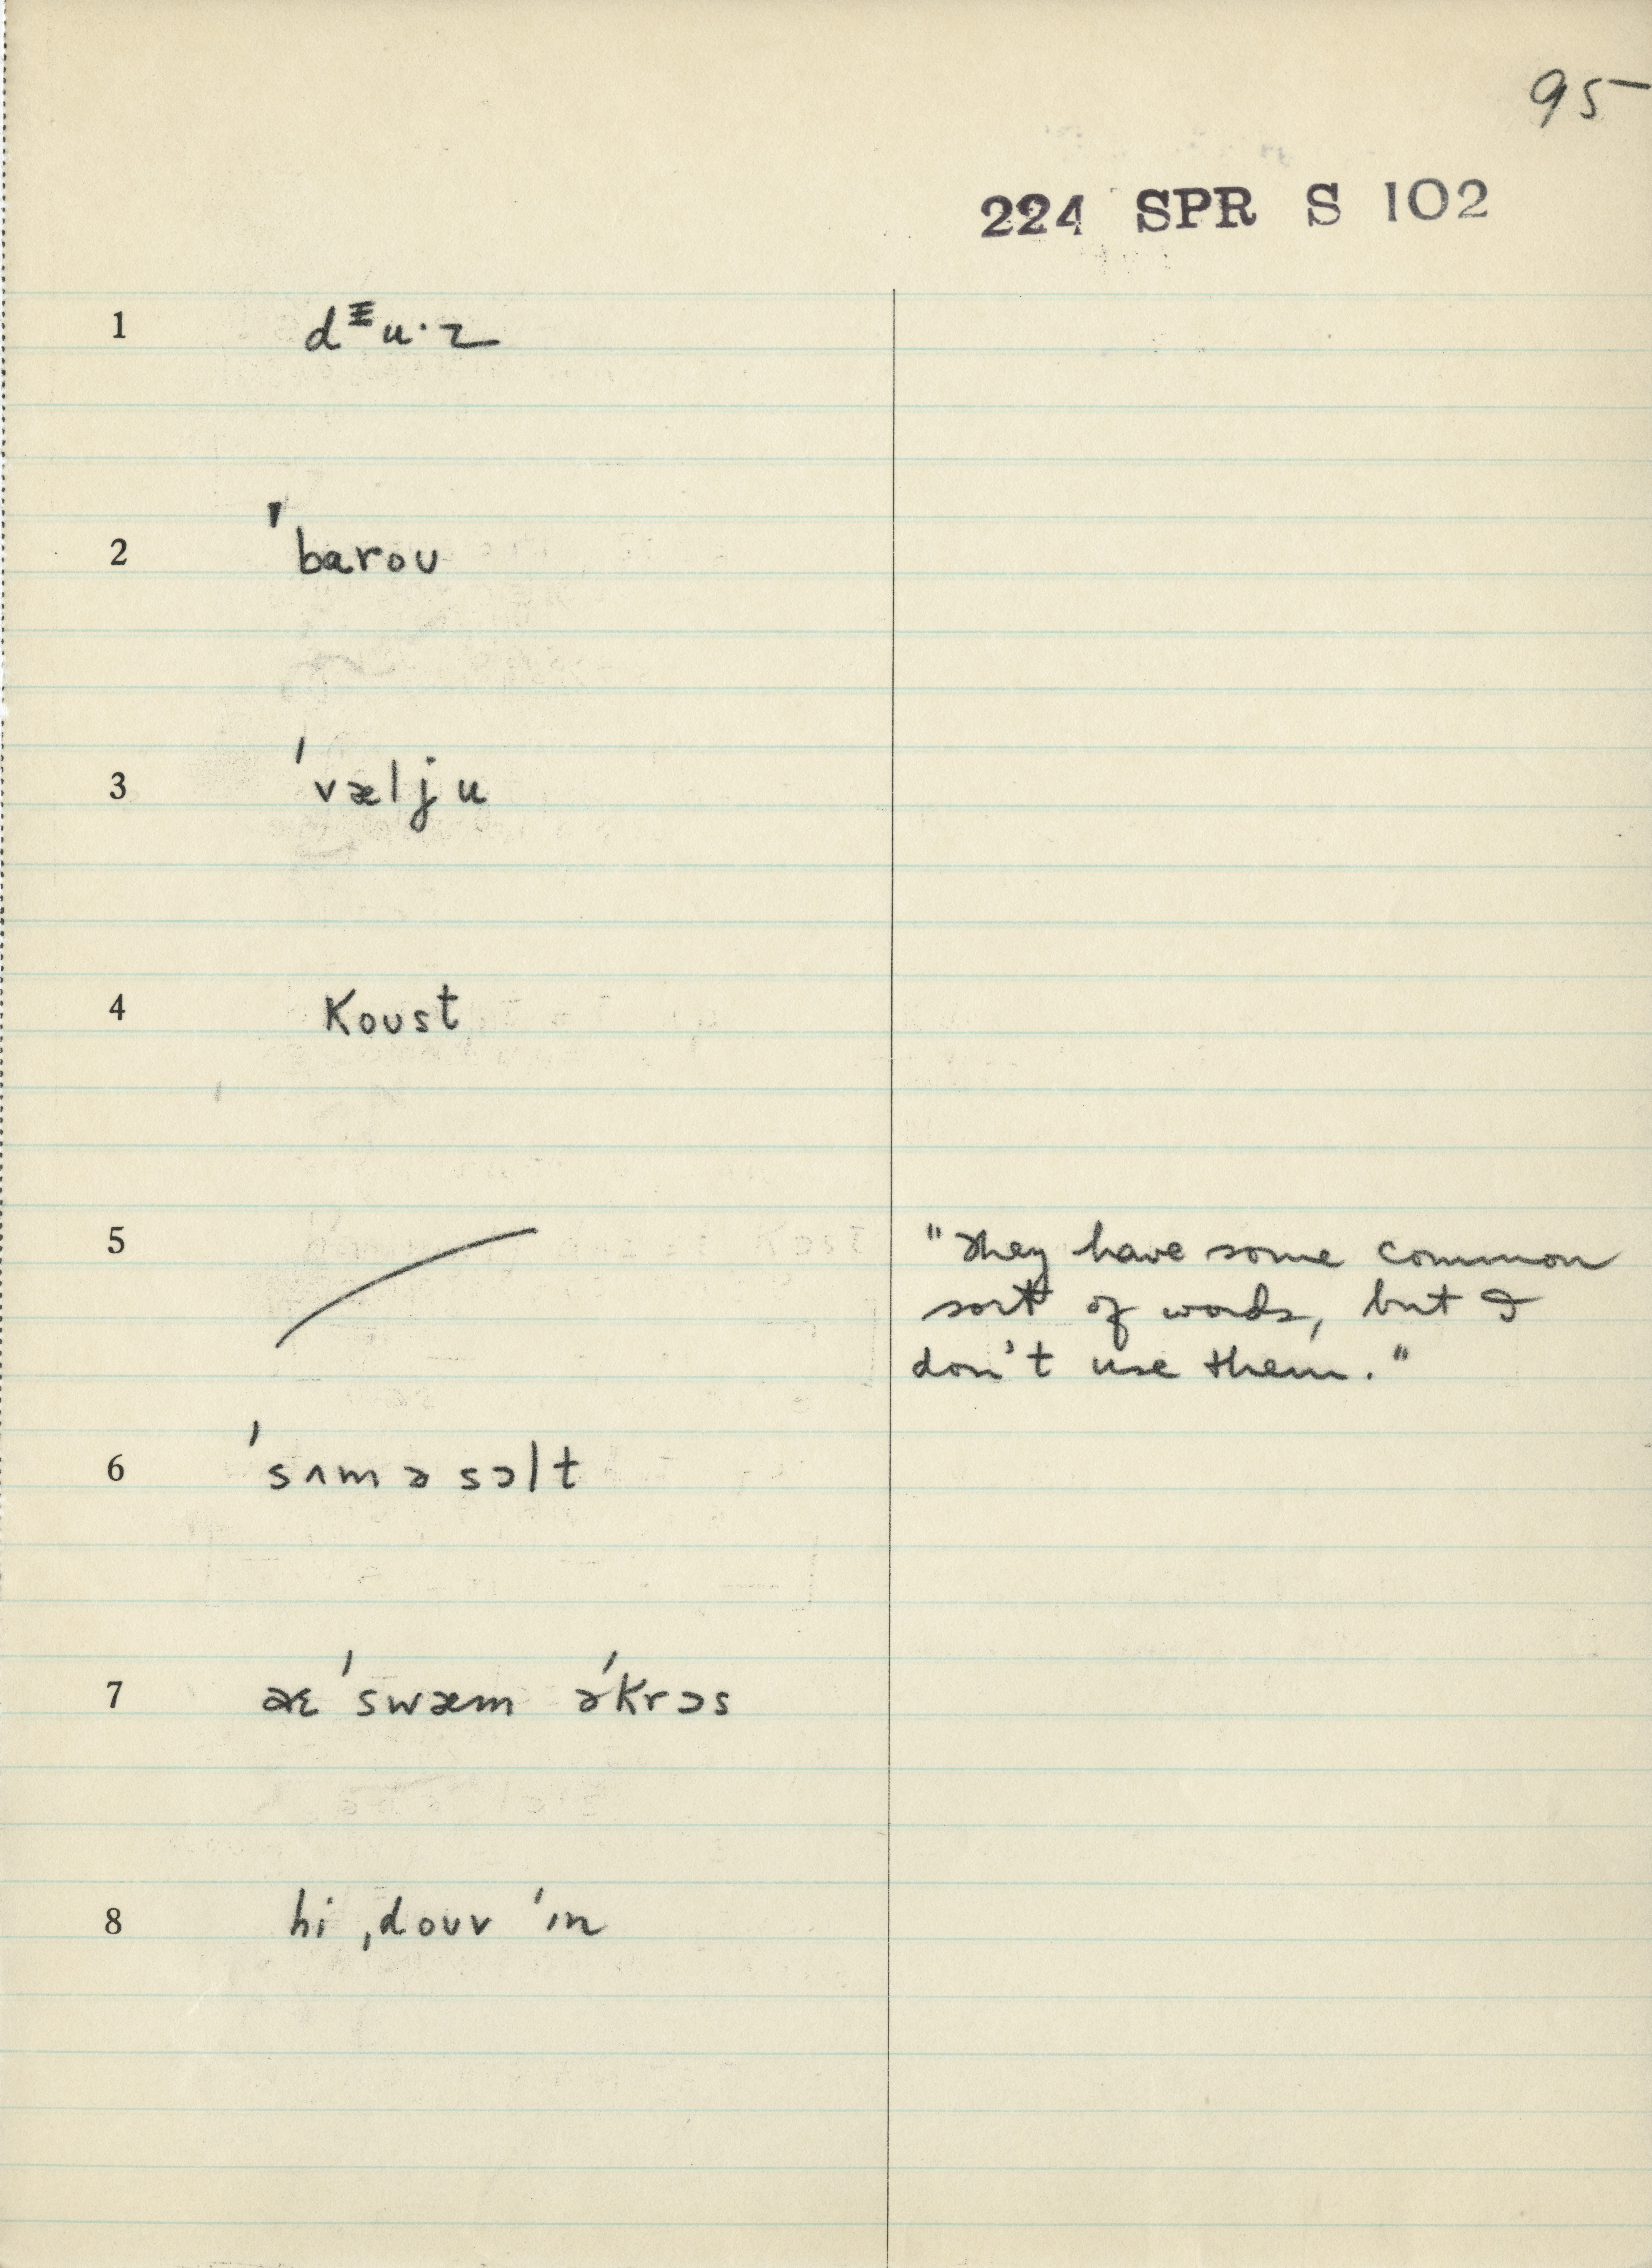 95
224 SPR S 102
1 dᵻu·z
2 ˈbarou
3 ˈvælju
4 Koust
5 "They have some common
sort of words, but I
don't use them."
6 ˈsʌm ə sɔlt
7 aɛ ˈswæm əˈkrɔs
8 hi ˌdouv ˈɪn